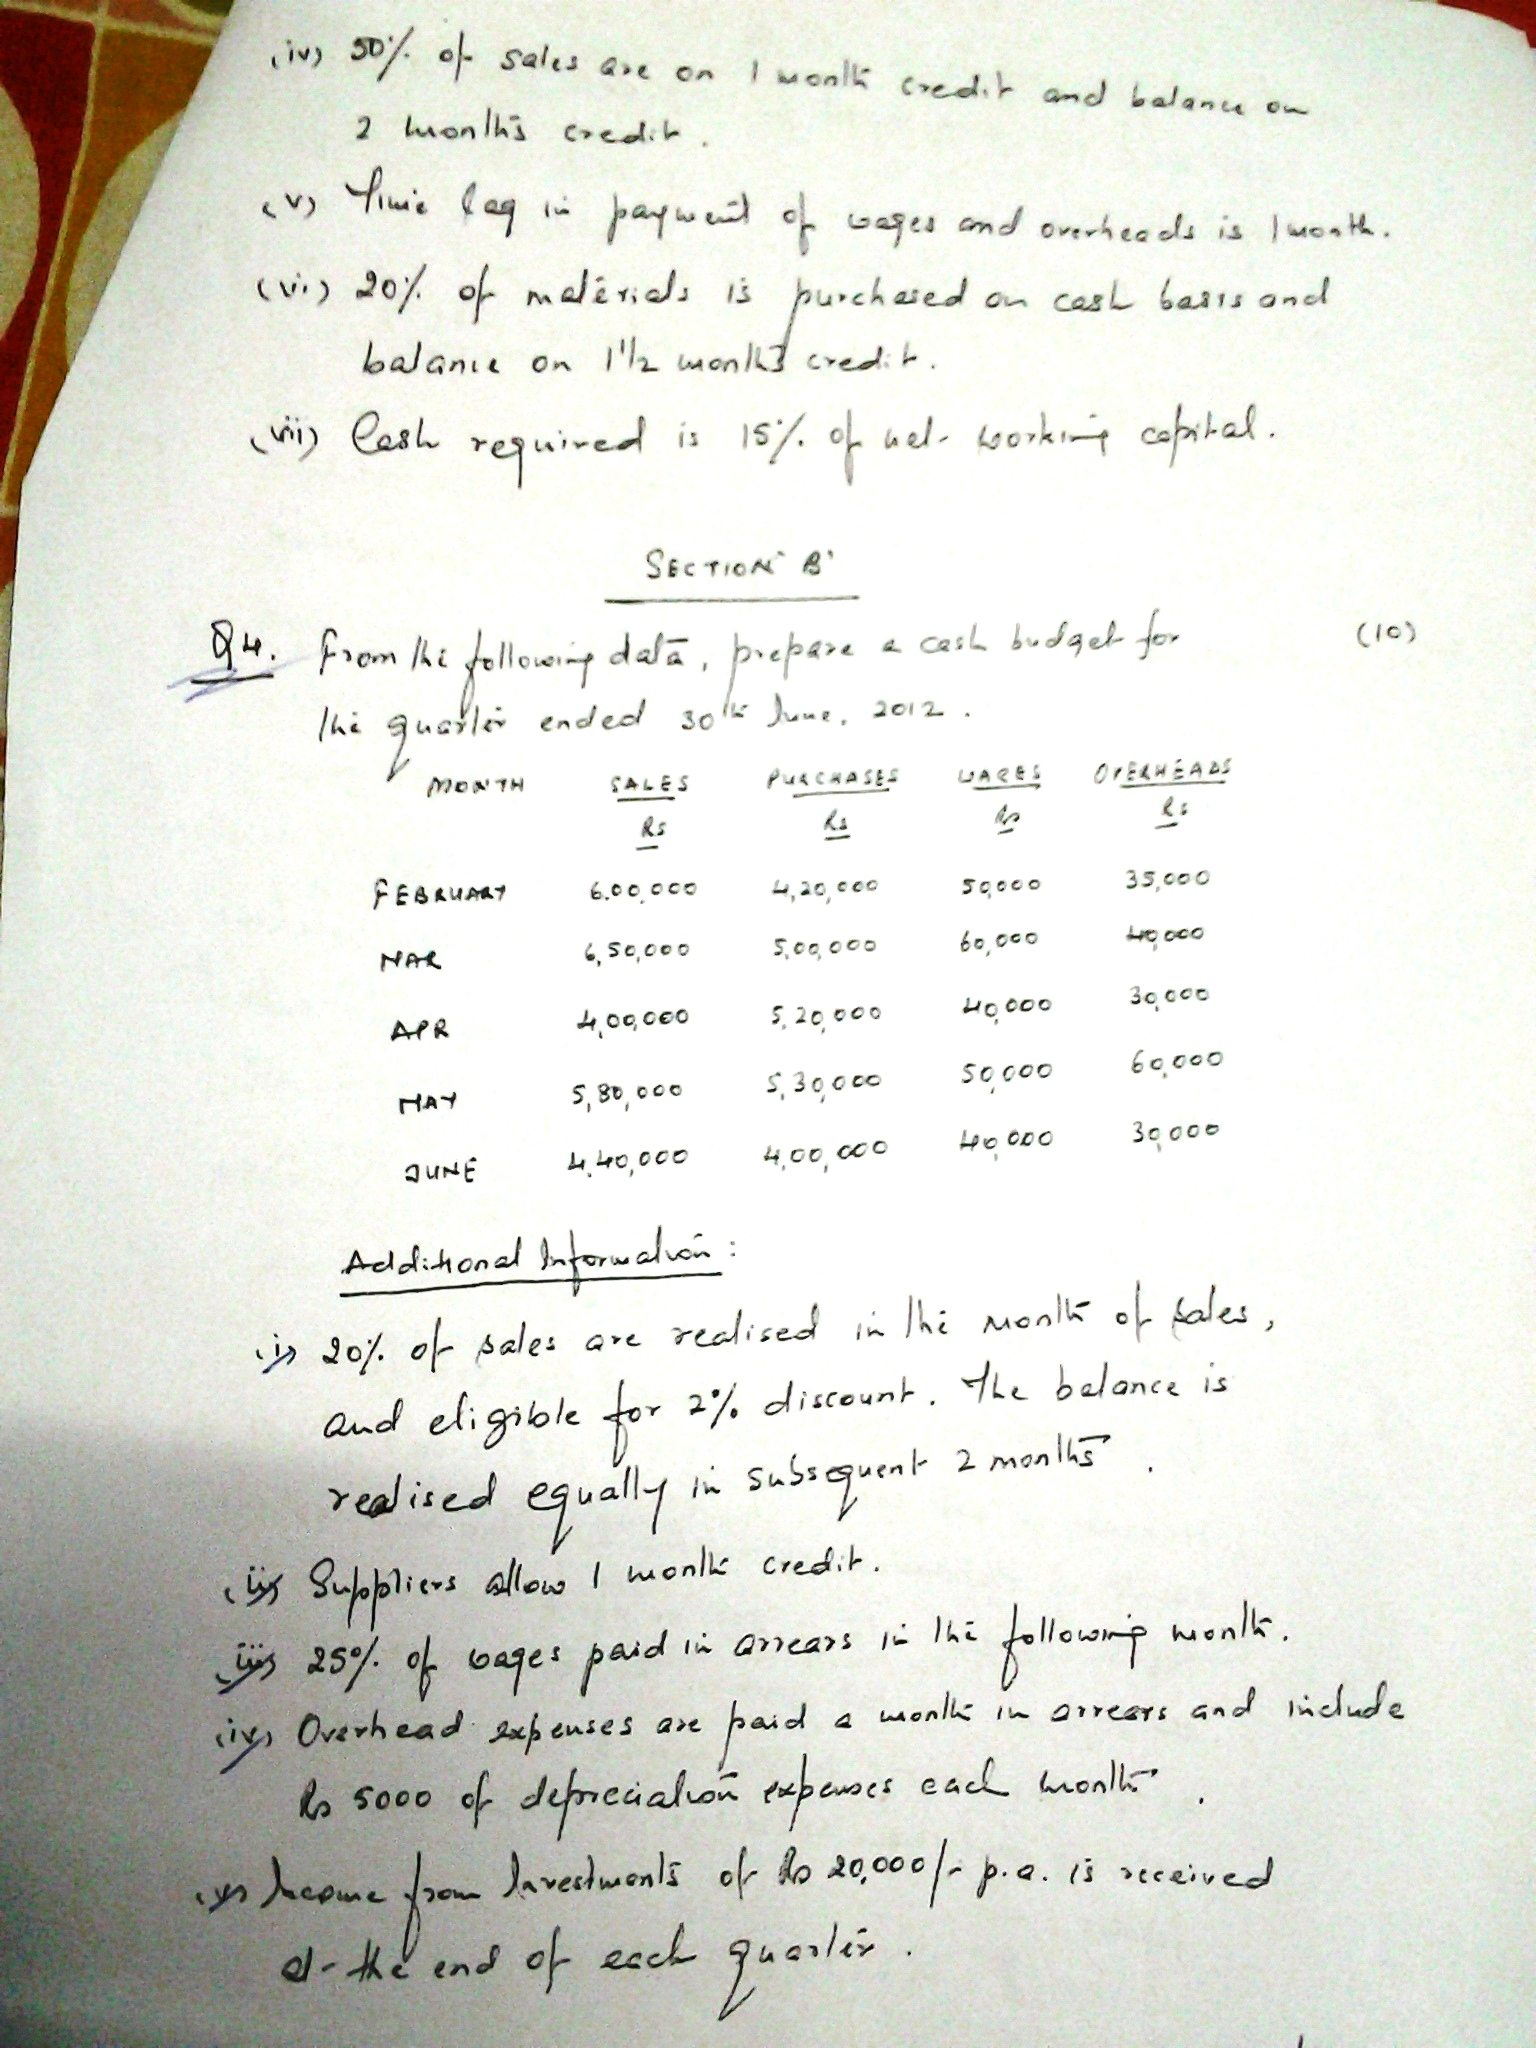 (iv) 50% of sales are on 1 month credit and balance on
2 months credit.
(v) Time lag in payment of wages and overheads is 1 month.
(vi) 20% of materials is purchased on cash basis and
balance on 1 1/2 months credit.
(vii) Cash required is 15% of net working capital.
SECTION 'B'
Q4. From the following data, prepare a cash budget for (10)
the quarter ended 30th June, 2012.
MONTH SALES PURCHASES WAGES OVERHEADS
Rs Rs Rs Rs
FEBRUARY 6,00,000 4,20,000 50,000 35,000
MAR 6,50,000 5,00,000 60,000 40,000
APR 4,00,000 5,20,000 40,000 30,000
MAY 5,80,000 5,30,000 50,000 60,000
JUNE 4,40,000 4,00,000 40,000 30,000
Additional Information:
(i) 20% of sales are realised in the month of sales,
and eligible for 2% discount. The balance is
realised equally in subsequent 2 months.
(ii) Suppliers allow 1 month credit.
(iii) 25% of wages paid in arrears in the following month.
(iv) Overhead expenses are paid a month in arrears and include
Rs 5000 of depreciation expenses each month.
(v) Income from Investments of Rs 20,000/- p.a. is received
at the end of each quarter.